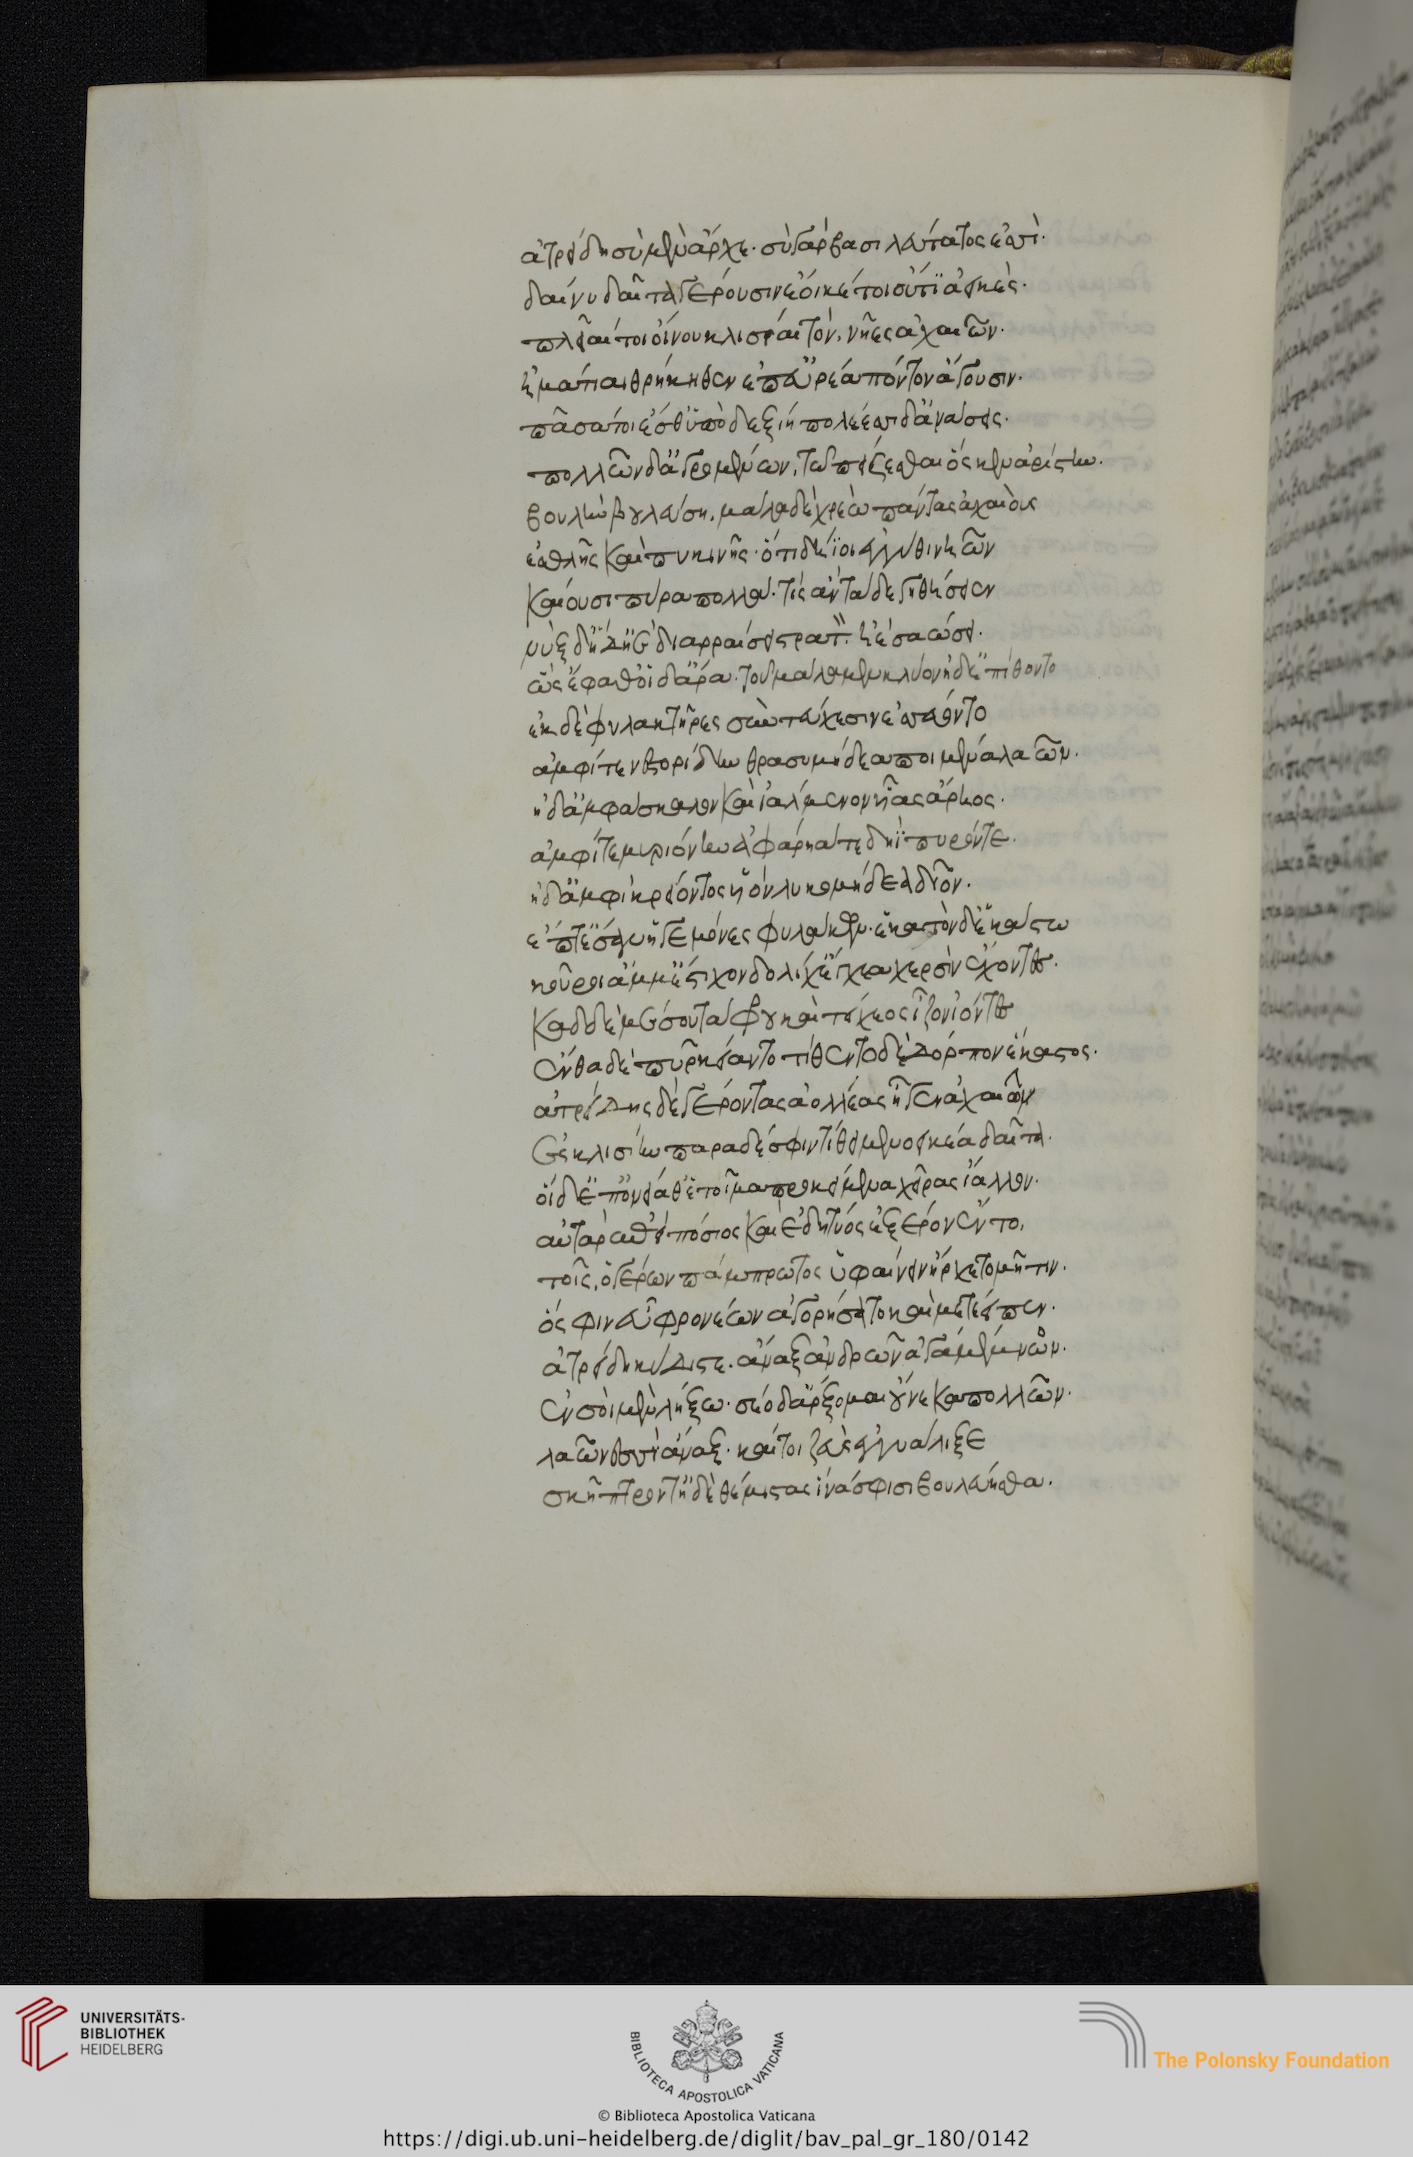 ἀτρείδη σὺ μὲν ἄρχε· σὺ γὰρ βασιλεύτατος ἐσσὶ·
δαίνυ δαῖτα γέρουσιν ἔοικέ τοι οὔτϊ ἀεικὲς·
πλεῖαί τοι οἴνου κλισίαι τὸν, νῆες ἀχαιῶν·
ἠμάτιαι θρήκηθεν ἐπ' εὐρέα πόντον ἄγουσιν·
πᾶσά τοι ἔσθ' ὑποδεξίη πολέεσσι δ' ἀνάσσεις·
πολλῶν δ' ἀγρομένων, τῶ πείσεαι ὅς κεν ἀρίστην·
βουλὴν βουλεύση. μάλα δὲ χρεὼ πάντας ἀχαιοὺς
ἐσθλῆς καὶ πυκινῆς· ὅτι δήϊοι ἐγγύθι νηῶν
καίουσι πυρὰ πολλά· τίς ἂν τάδε γηθήσειεν
νὺξ δ' ἥδ' ἠὲ διαρραίσει στρατ. ἠὲ σαώσει·
ὣς ἔφαθ' οἳ δ' ἄρα τοῦ μάλα μὲν κλύον ἠδ' ἐπίθοντο
ἐκ δὲ φυλακτῆρες σὺν τεύχεσιν ἐσσεύοντο
ἀμφί τε νεστορίδην θρασυμήδεα ποιμένα λαῶν·
ἠδ' ἀμφ' ἀσκάλαφον καὶ ἰάλμενον υἷας ἄρηος·
ἀμφί τε μηριόνην ἀφαρῆά τε δηΐπυρόν τε·
ἠδ' ἀμφὶ κρείοντος υἱὸν λυκομήδεα δῖον·
ἕπτ' ἔσαν ἡγεμόνες φυλάκων· ἑκατὸν δὲ ἑκάστω
κοῦροι ἅμ' ἔστιχον δολίχ' ἔγχεα χερσὶν ἔχοντες·
καδδὲ μέσον τάφρου καὶ τείχεος ἷζον ἰόντες
ἔνθα δὲ πῦρ κείαντο τίθεντο δὲ δόρπον ἕκαστος·
ἀτρείδης δὲ γέροντας ἀολλέας ἦγεν ἀχαιῶν
ἐς κλισίην παρὰ δέ σφιν τίθει μενοεικέα δαῖτα·
οἱ δ' ἐπ' ὀνείαθ' ἑτοῖμα προκείμενα χεῖρας ἴαλλον·
αὐτὰρ ἐπεὶ πόσιος καὶ ἐδητύος ἐξ ἔρον ἕντο,
τοῖς, ὁ γέρων πάμπρωτος ὑφαίνειν ἤρχετο μῆτιν·
ὅς φιν εὐφρονέων ἀγορήσατο καὶ μετέειπεν·
ἀτρείδη κύδιστε. ἄναξ ἀνδρῶν ἀγάμεμνον·
ἐν σοὶ μὲν λήξω· σέο δ' ἄρξομαι οὕνεκα πολλῶν·
λαῶν ἐσσὶ ἄναξ· καί τοι ζεὺς ἐγγυάλιξε
σκῆπτρόν τ' ἠδὲ θέμιστας ἵνά σφισι βουλεύησθα·
UNIVERSITÄTS-
BIBLIOTHEK
HEIDELBERG
BIBLIOTECA APOSTOLICA VATICANA
The Polonsky Foundation
© Biblioteca Apostolica Vaticana
https://digi.ub.uni-heidelberg.de/diglit/bav_pal_gr_180/0142